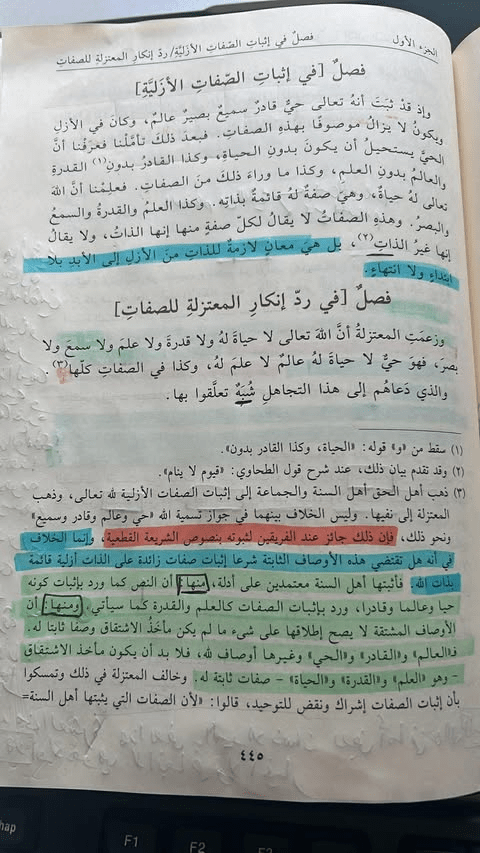 الجزء الأول
فصلٌ في إثباتِ الصِّفاتِ الأزليَّةِ/ ردّ إنكارِ المعتزلةِ للصفاتِ
فصلٌ [في إثباتِ الصِّفاتِ الأزليَّةِ]
وإذ قدْ ثبَتَ أنهُ تعالى حيٌّ قادرٌ سميعٌ بصيرٌ عالمٌ، وكانَ في الأزلِ
ويكونُ لا يزالُ موصوفًا بهذهِ الصفاتِ. فبعدَ ذلكَ تأمَّلْنا فعرَفْنا أنَّ
الحيَّ يستحيلُ أن يكونَ بدونِ الحياةِ، وكذا القادرُ بدونِ(١) القدرةِ
والعالمُ بدونِ العلمِ، وكذا ما وراءَ ذلكَ منَ الصفاتِ. فعلِمْنا أنَّ اللهَ
تعالى لهُ حياةٌ، وهيَ صفةٌ لهُ قائمةٌ بذاتِه. وكذا العلمُ والقدرةُ والسمعُ
والبصرُ. وهذهِ الصفاتُ لا يقالُ لكلّ صفةٍ منها إنها الذاتُ، ولا يقالُ
إنها غيرُ الذاتِ(٢)، بل هيَ معانٍ لازمةٌ للذاتِ منَ الأزلِ إلى الأبدِ بلا
ابتداءٍ ولا انتهاءٍ.
فصلٌ [في ردّ إنكارِ المعتزلةِ للصفاتِ]
وزعمَتِ المعتزلةُ أنَّ اللهَ تعالى لا حياةَ لهُ ولا قدرةَ ولا علمَ ولا سمعَ ولا
بصرَ، فهوَ حيٌّ لا حياةَ لهُ عالمٌ لا علمَ لهُ، وكذا في الصفاتِ كلِّها(٣)
والذي دَعاهُم إلى هذا التجاهلِ شُبَهٌ تعلَّقوا بها.
(١) سقط من «و» قوله: «الحياة، وكذا القادر بدون».
(٢) وقد تقدم بيان ذلك، عند شرح قول الطحاوي: «قيوم لا ينام».
(٣) ذهب أهل الحق أهل السنة والجماعة إلى إثبات الصفات الأزلية لله تعالى، وذهب
المعتزلة إلى نفيها. وليس الخلاف بينهما في جواز تسمية الله «حي وعالم وقادر وسميع»
ونحو ذلك، فإن ذلك جائز عند الفريقين لثبوته بنصوص الشريعة القطعية، وإنما الخلاف
في أنه هل تقتضي هذه الأوصاف الثابتة شرعا إثبات صفات زائدة على الذات أزلية قائمة
بذات الله. فأثبتها أهل السنة معتمدين على أدلة، منها: أن النص كما ورد بإثبات كونه
حيا وعالما وقادرا، ورد بإثبات الصفات كالعلم والقدرة كما سيأتي. ومنها: أن
الأوصاف المشتقة لا يصح إطلاقها على شيء ما لم يكن مأخَذُ الاشتقاق وصفًا ثابتا له.
فـ«العالم» و«القادر» و«الحي» وغيرها أوصاف لله، فلا بد أن يكون مأخذ الاشتقاق
- وهو «العلم» و«القدرة» و«الحياة» - صفات ثابتة له. وخالف المعتزلة في ذلك وتمسكوا
بأن إثبات الصفات إشراك ونقض للتوحيد، قالوا: «لأن الصفات التي يثبتها أهل السنة=
٤٤٥
hap
F1
F2